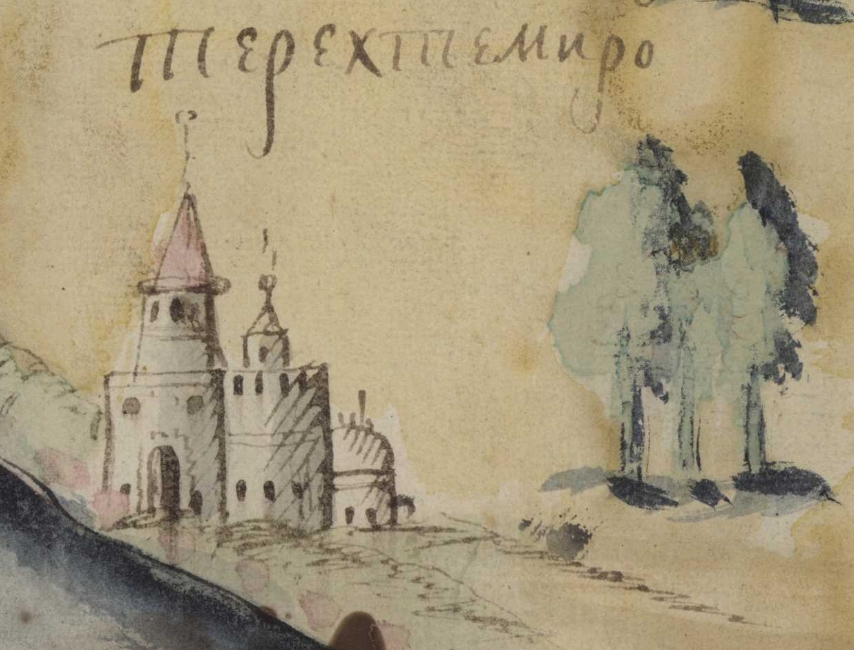 терехтемиро